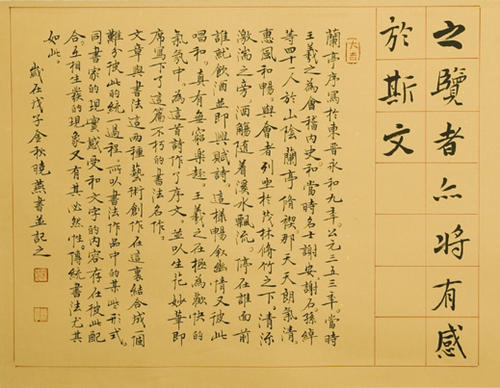 之覽者亦將有感
於斯文
蘭亭序寫於東晉永和九年。公元三五三年。當時
王羲之為會稽內史和當時名士謝安謝石孫綽
等四十一人於山陰蘭亭脩禊那天天朗氣清
惠風和暢。與會者列坐於茂林脩竹之下清源
激湍之旁酒觴隨着溪水飄流。停在誰面前
誰就飲酒並即興賦詩。這樣暢敘幽情又彼此
唱和。真有無窮樂趣。王羲之在極為歡快的
氣氛中。為這首詩作了序文。並以生花妙筆即
席寫下了這篇不朽的書法名作。
文章與書法這兩種藝術創作在這裏結合成個
難分彼此的統一過程。所以書法作品中的某些形式。
同書家的現實感受和文字的內容存在彼此配
合互相生發的現象又有其必然性。傳統書法尤其
如此。
歲在戊子金秋曉燕書並記之